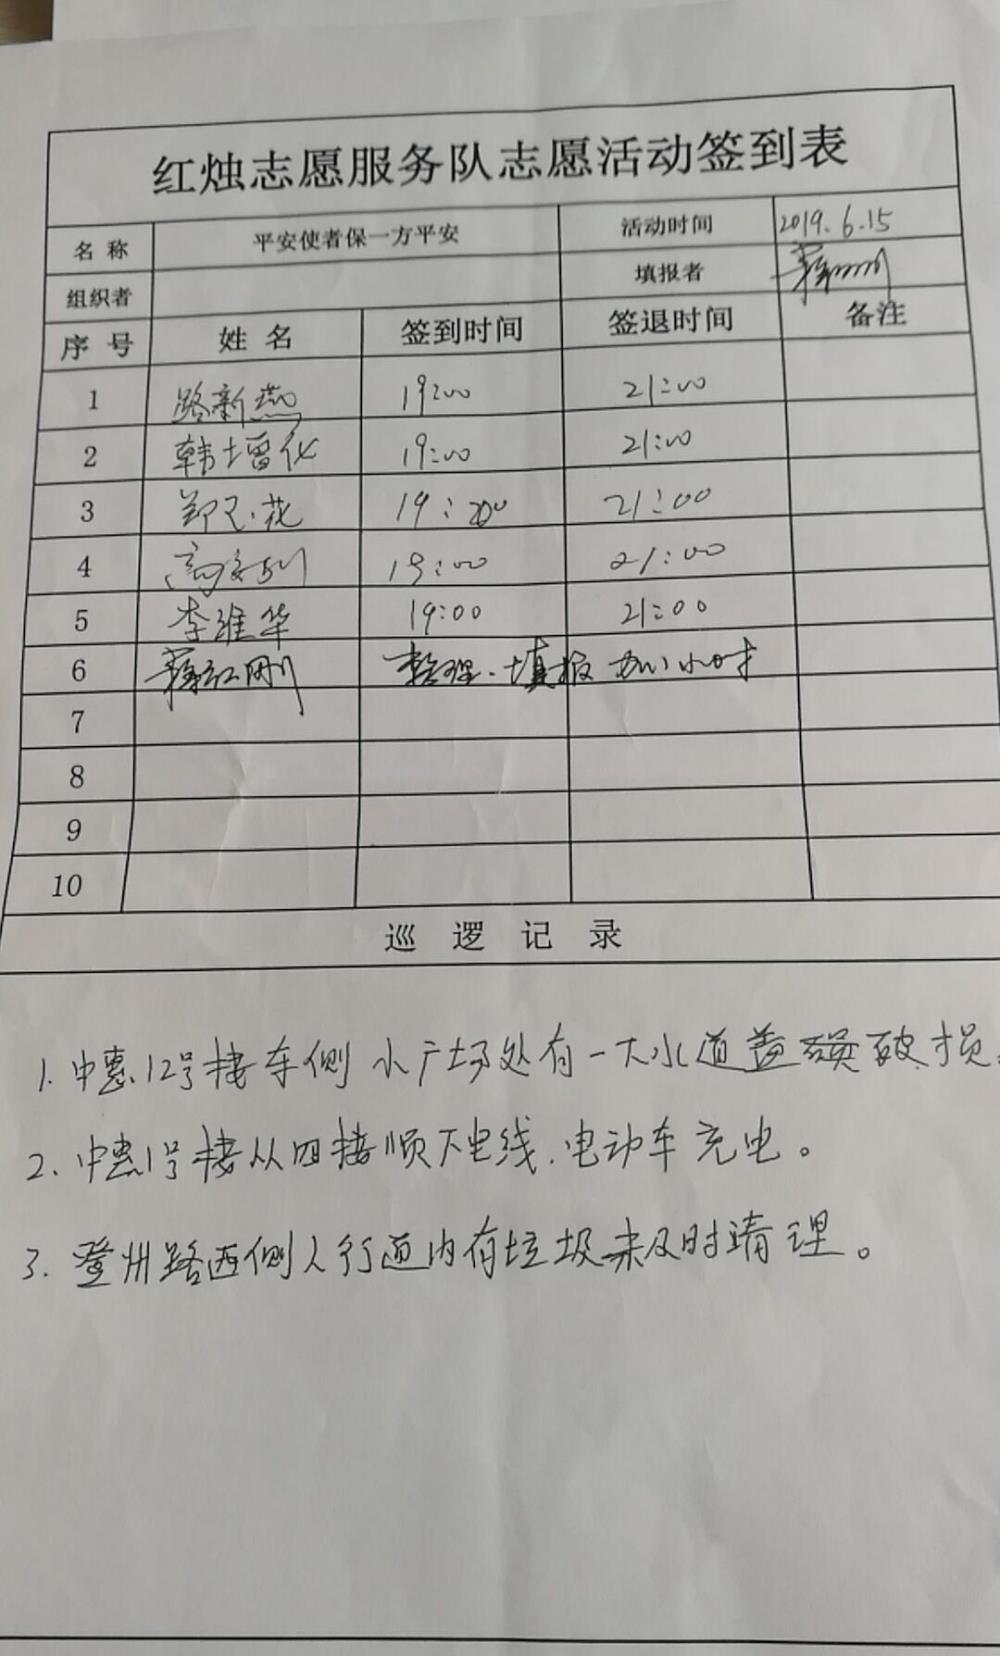 红烛志愿服务队志愿活动签到表
名称 平安使者保一方平安 活动时间 2019.6.15
组织者 填报者
序号 姓名 签到时间 签退时间 备注
1 路新燕 19:00 21:00
2 韩增化 19:00 21:00
3 郑 花 19:00 21:00
4 高 19:00 21:00
5 李维华 19:00 21:00
6 蒋红刚 整理、填报 加1小时
7
8
9
10
巡逻记录
1. 中惠12号楼车侧小广场处有一大水道盖 破损.
2. 中惠1号楼从四楼顺下电线.电动车充电。
3. 登州路西侧人行道内有垃圾未及时清理。